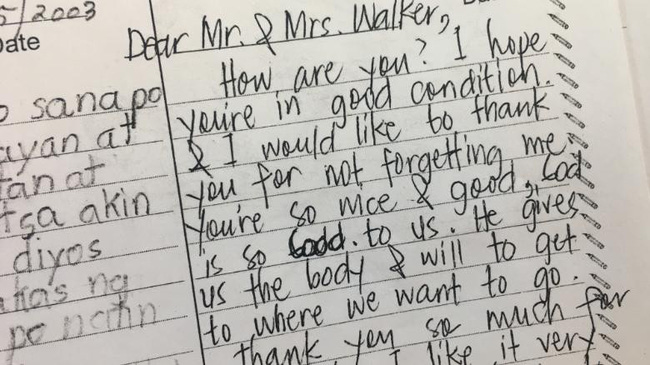 5/2003
Date
sana po
ayan at
tan at
tsa akin
diyos
has ng
po
Dear Mr. & Mrs. Walker,
How are you? I hope
you're in good condition.
& I would like to thank
you for not forgetting me.
you're so nice & good, God
is so Godd. to us. He gives
us the body & will to get
to where we want to go.
thank you so much for
I like it very